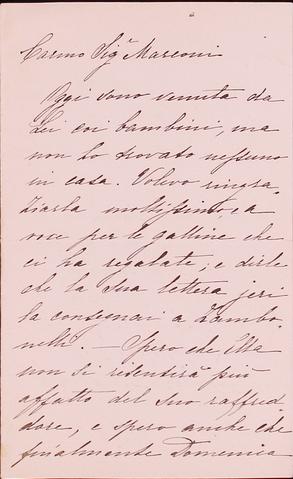 Carino Sig.ª Marconi
Oggi sono venuta da
Lei coi bambini, ma
non ho trovato nessuno
in casa. Volevo ringra-
ziarla moltissimo a
voce per le galline che
ci ha regalate; e dirle
che la Sua lettera jeri
la consegnai a Zambo-
nelli. — Spero che Ella
non si risentirà più
affatto del suo raffred-
dore, e spero anche che
finalmente Domenica